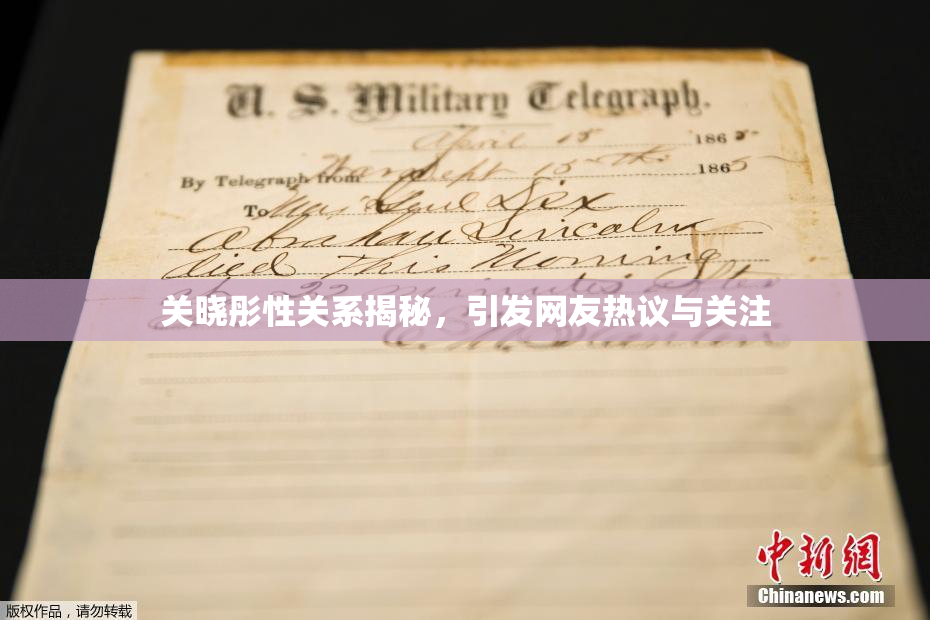 U. S. Military Telegraph.
April 15 1865
By Telegraph from War Dept 15th 1865
To Maj Genl Dix
Abraham Lincoln
died This Morning
at 22 minutes after
关晓彤性关系揭秘，引发网友热议与关注
中新网
Chinanews.com
版权作品，请勿转载